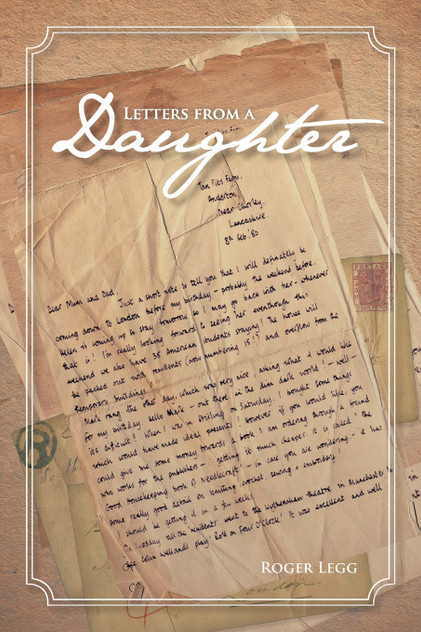 LETTERS FROM A
Daughter
Anderton,
Near Chorley,
Lancashire.
8th Feb '80
Dear Mum and Dad,
Just a short note to tell you that I will definately be
coming down to London before my birthday - probably the weekend before.
Helen is coming up to stay tomorrow so I may go back with her - whenever
that is! I'm really looking forward to seeing her eventhough this
weekend we also have 38 American students staying! The house will
be packed out with residents (now numbering 15!) and overflow from the
temporary buildings.
Mark rang the other day, which was very nice, asking what I would like
for my birthday. Hello Mark - out there in the dim dark world! - well -
it's difficult! When I was in Stirling on Saturday, I bought some things
which would have made ideal presents! However if you would like, you
could give me some money towards a book I am ordering through a friend
who works for the publisher - getting it much cheaper. It is called 'The
Good Housekeeping book of Needlecraft' - in case you are wondering - it has
some really good detail on knitting crochet sewing & embroidery!
I should be getting it in a few weeks.
On Tuesday all the residents went to the Wythenshawe theatre in Manchester to
see Colin Wellands play 'Roll on Four O'Clock'! It was excellent and well
POSTAGE
R
London.
ROGER LEGG